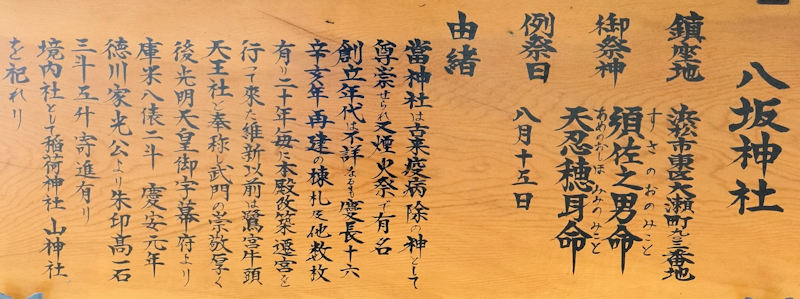 八坂神社
鎮座地 浜松市東区大瀬町九三番地
御祭神 須佐之男命
すさのおのみこと
天忍穂耳命
あめのおしほみみのみこと
例祭日 八月十五日
由緒
當神社は古来疫病除の神として
尊崇せられ又煙火祭で有名
創立年代は不詳なるも慶長十六
辛亥年再建の棟札及他数枚
有り二十年毎に本殿改築遷宮を
行って来た維新以前は鷺宮牛頭
天王社と奉称し武門の崇敬厚く
後光明天皇御宇幕府より
庫米八俵二斗 慶安元年
徳川家光公より朱印高一石
三斗五升寄進有り
境内社として稲荷神社 山神社
を祀れり